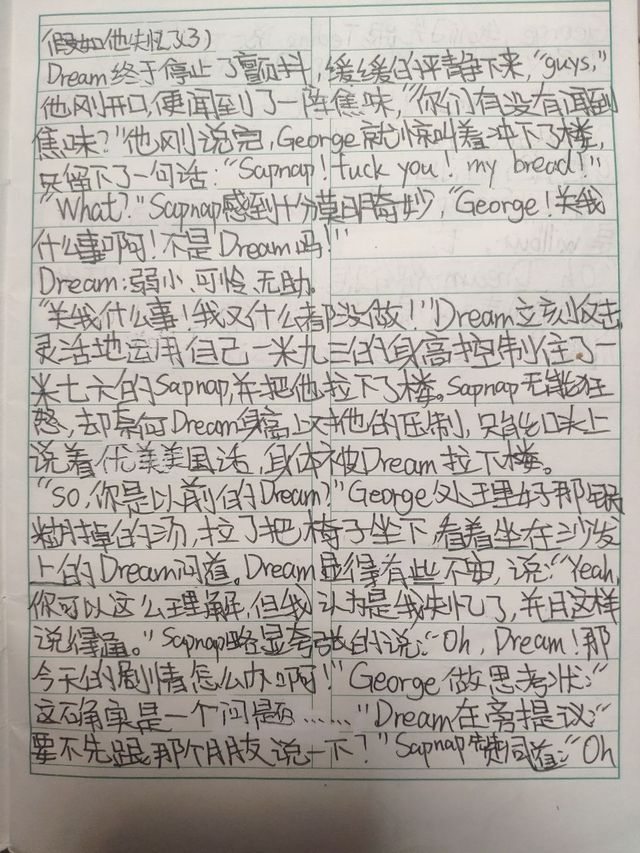 假如他失忆了(3)
Dream终于停止了颤抖,缓缓的平静下来,"guys,"
他刚开口,便闻到了一阵焦味,"你们有没有闻到
焦味?"他刚说完,George就惊叫着冲下了楼,
只留下了一句话:"Sapnap! fuck you! my bread!"
"What?"Sapnap感到十分莫明奇妙,"George!关我
什么事啊!不是Dream吗!"
Dream:弱小、可怜、无助。
"关我什么事!我又什么都没做!"Dream立刻反击,
灵活地运用自己一米九三的身高控制住了一
米七六的Sapnap,并把他拉下了楼。Sapnap无能狂
怒,却奈何Dream身高上对他的压制,只能口头上
说着优美美国话,身体被Dream拉下楼。
"So,你是以前的Dream?"George处理好那锅
糊掉的汤,拉了把椅子坐下,看着坐在沙发
上的Dream问道。Dream显得有些不安,说:"Yeah,
你可以这么理解,但我认为是我失忆了,并且这样
说得通。"Sapnap略显夸张的说:"Oh, Dream!那
今天的剧情怎么办啊!"George做思考状:"
这确实是一个问题……"Dream在旁提议:"
要不先跟那个朋友说一下?"Sapnap赞同道:"Oh